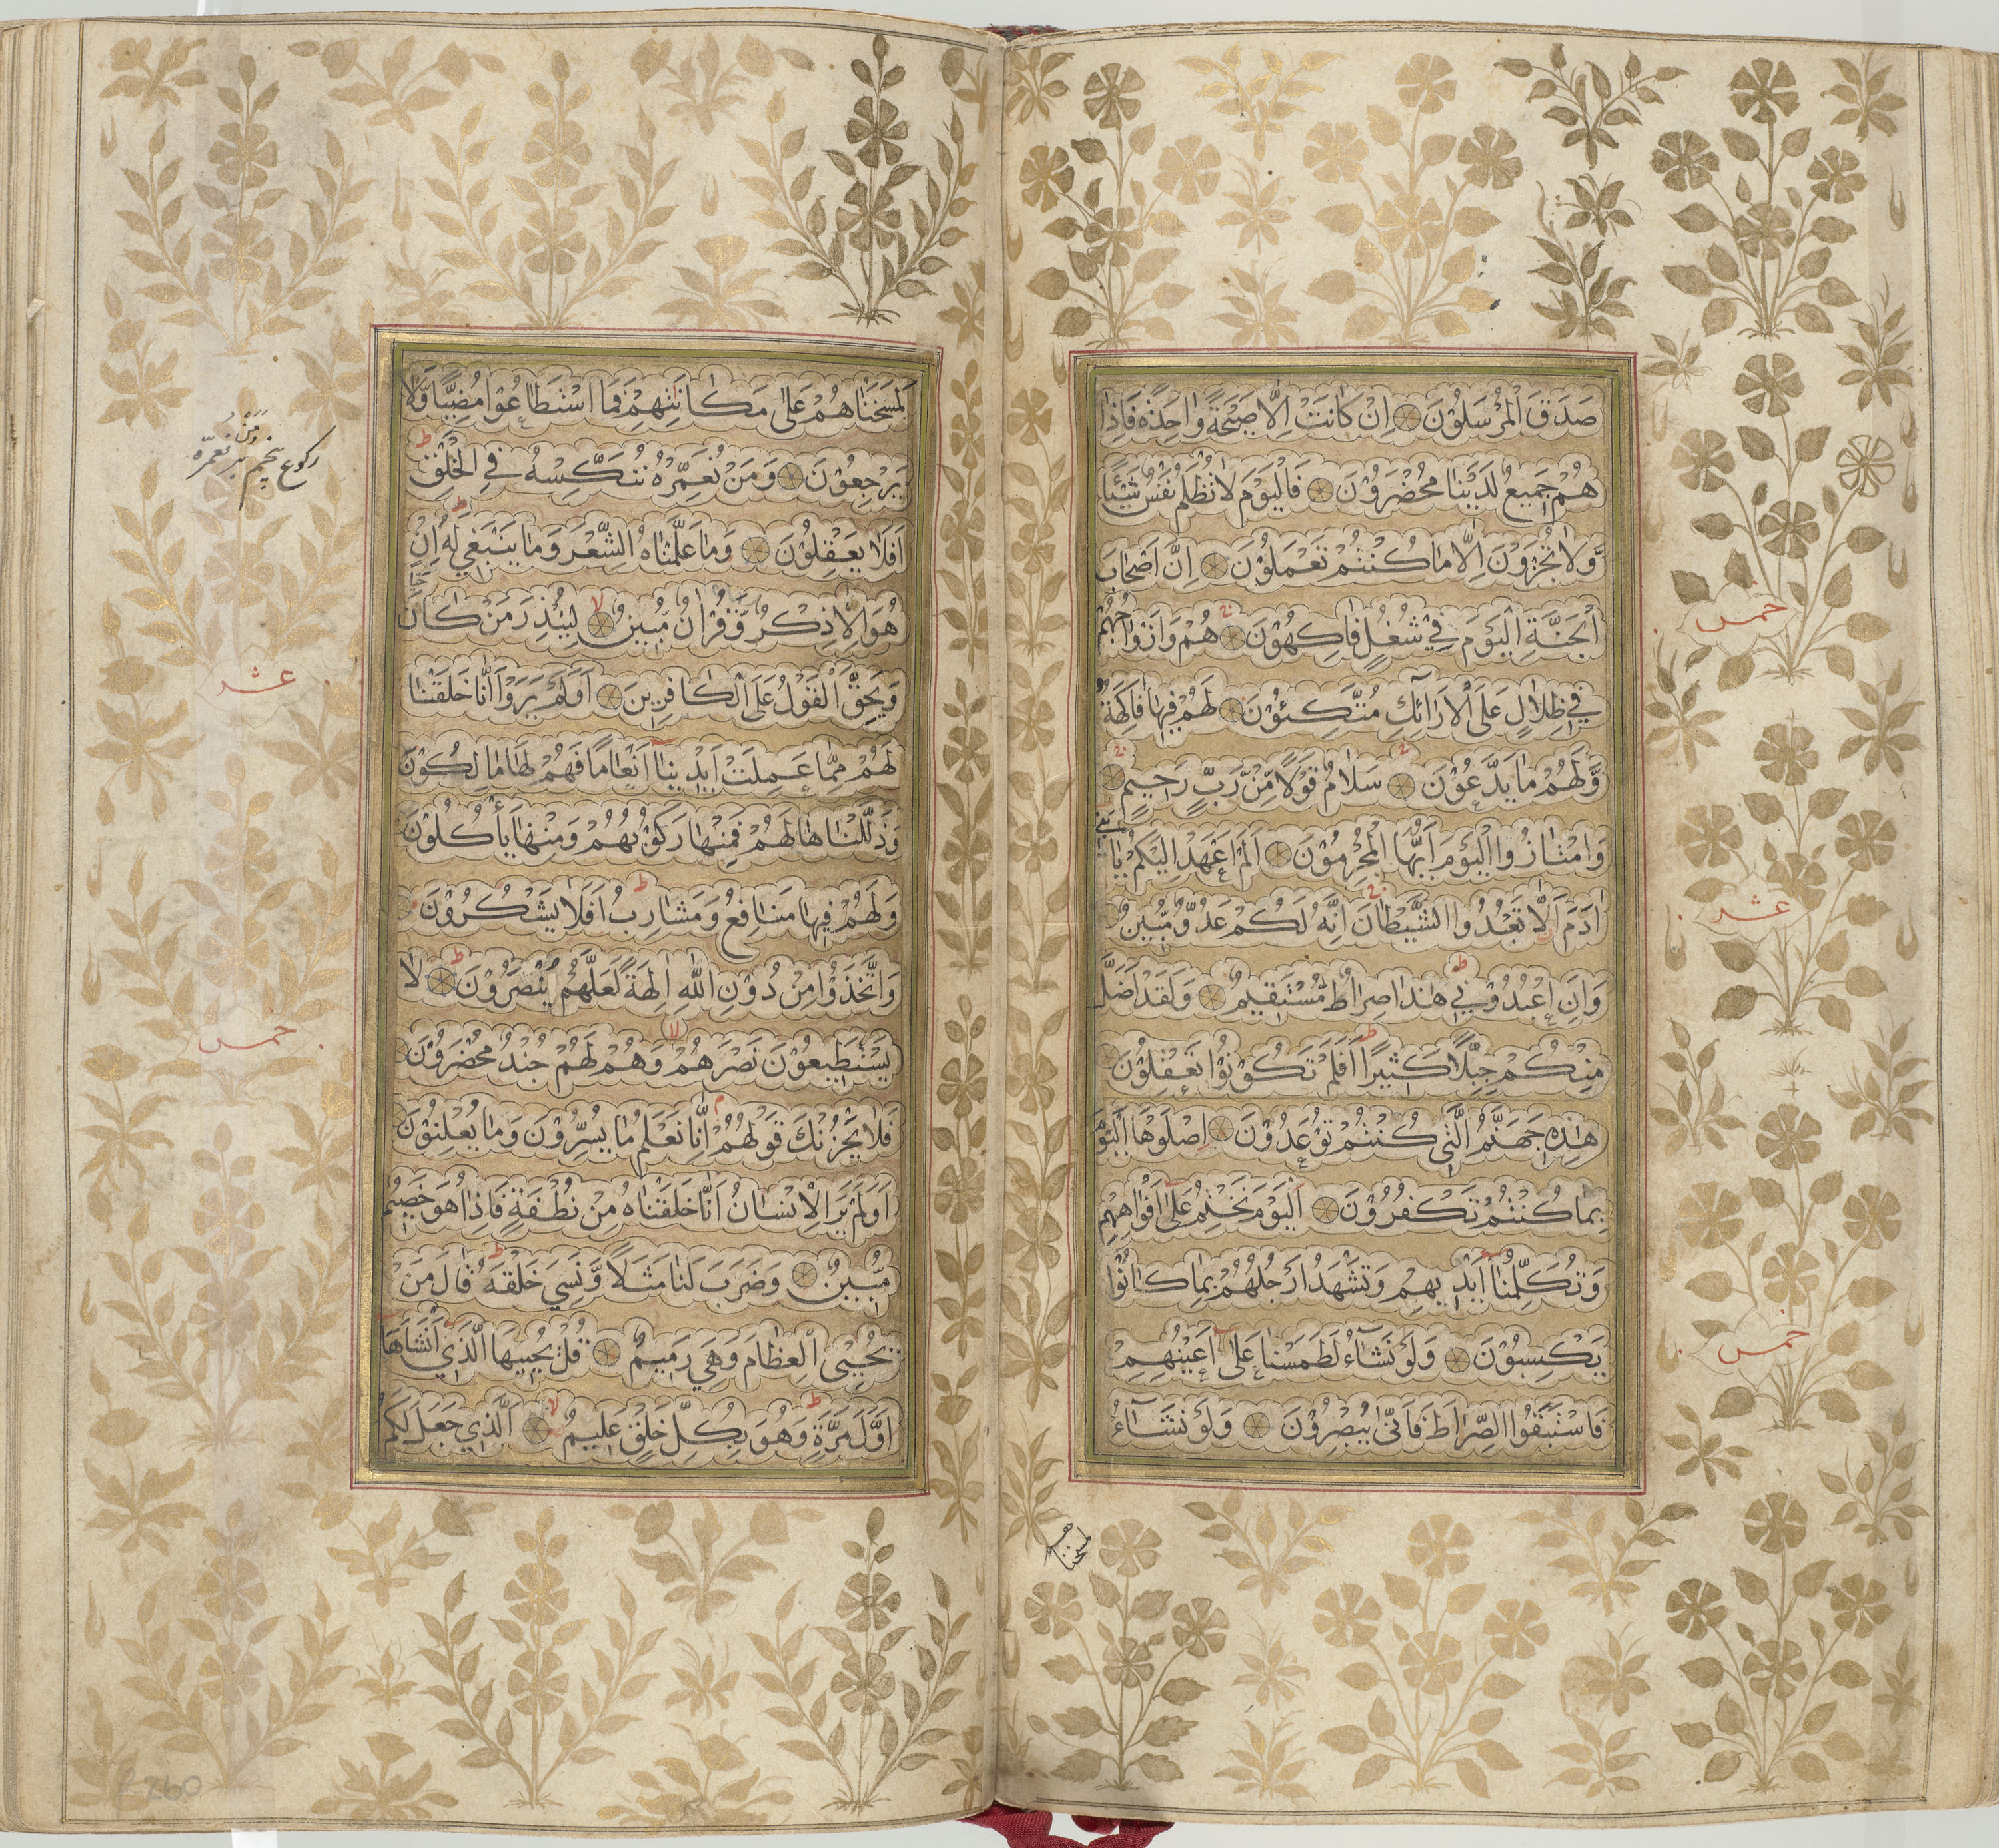 صَدَقَ الْمُرْسَلُوْنَ اِنْ كَانَتْ اِلَّا صَيْحَةً وَّاحِدَةً فَاِذَا
هُمْ جَمِيْعٌ لَدَيْنَا مُحْضَرُوْنَ فَالْيَوْمَ لَا تُظْلَمُ نَفْسٌ شَيْئًا
وَّلَا تُجْزَوْنَ اِلَّا مَا كُنْتُمْ تَعْمَلُوْنَ اِنَّ اَصْحَابَ
الْجَنَّةِ الْيَوْمَ فِيْ شُغُلٍ فَاكِهُوْنَ هُمْ وَاَزْوَاجُهُمْ
فِيْ ظِلَالٍ عَلَى الْاَرَآئِكِ مُتَّكِئُوْنَ لَهُمْ فِيْهَا فَاكِهَةٌ
وَّلَهُمْ مَا يَدَّعُوْنَ سَلَامٌ قَوْلًا مِّنْ رَّبٍّ رَحِيْمٍ
وَامْتَازُوا الْيَوْمَ اَيُّهَا الْمُجْرِمُوْنَ اَلَمْ اَعْهَدْ اِلَيْكُمْ يَا بَنِيْ
اٰدَمَ اَلَّا تَعْبُدُوا الشَّيْطَانَ اِنَّهُ لَكُمْ عَدُوٌّ مُّبِيْنٌ
وَاَنِ اعْبُدُوْنِيْ هٰذَا صِرَاطٌ مُسْتَقِيْمٌ وَلَقَدْ اَضَلَّ
مِنْكُمْ جِبِلًّا كَثِيْرًا اَفَلَمْ تَكُوْنُوْا تَعْقِلُوْنَ
هٰذِهِ جَهَنَّمُ الَّتِيْ كُنْتُمْ تُوْعَدُوْنَ اِصْلَوْهَا الْيَوْمَ
بِمَا كُنْتُمْ تَكْفُرُوْنَ اَلْيَوْمَ نَخْتِمُ عَلٰى اَفْوَاهِهِمْ
وَتُكَلِّمُنَا اَيْدِيْهِمْ وَتَشْهَدُ اَرْجُلُهُمْ بِمَا كَانُوْا
يَكْسِبُوْنَ وَلَوْ نَشَآءُ لَطَمَسْنَا عَلٰى اَعْيُنِهِمْ
فَاسْتَبَقُوا الصِّرَاطَ فَاَنّٰى يُبْصِرُوْنَ وَلَوْ نَشَآءُ
خمس
عشر
خمس
لمسخناهم
لَمَسَخْنَاهُمْ عَلٰى مَكَانَتِهِمْ فَمَا اسْتَطَاعُوْا مُضِيًّا وَّلَا
يَرْجِعُوْنَ وَمَنْ نُعَمِّرْهُ نُنَكِّسْهُ فِي الْخَلْقِ
اَفَلَا يَعْقِلُوْنَ وَمَا عَلَّمْنَاهُ الشِّعْرَ وَمَا يَنْبَغِيْ لَهُ اِنْ
هُوَ اِلَّا ذِكْرٌ وَّقُرْاٰنٌ مُّبِيْنٌ لِيُنْذِرَ مَنْ كَانَ حَيًّا
وَيَحِقَّ الْقَوْلُ عَلَى الْكَافِرِيْنَ اَوَلَمْ يَرَوْا اَنَّا خَلَقْنَا
لَهُمْ مِمَّا عَمِلَتْ اَيْدِيْنَا اَنْعَامًا فَهُمْ لَهَا مَالِكُوْنَ
وَذَلَّلْنَاهَا لَهُمْ فَمِنْهَا رَكُوْبُهُمْ وَمِنْهَا يَأْكُلُوْنَ
وَلَهُمْ فِيْهَا مَنَافِعُ وَمَشَارِبُ اَفَلَا يَشْكُرُوْنَ
وَاتَّخَذُوْا مِنْ دُوْنِ اللّٰهِ اٰلِهَةً لَعَلَّهُمْ يُنْصَرُوْنَ لَا
يَسْتَطِيْعُوْنَ نَصْرَهُمْ وَهُمْ لَهُمْ جُنْدٌ مُحْضَرُوْنَ
فَلَا يَحْزُنْكَ قَوْلُهُمْ اِنَّا نَعْلَمُ مَا يُسِرُّوْنَ وَمَا يُعْلِنُوْنَ
اَوَلَمْ يَرَ الْاِنْسَانُ اَنَّا خَلَقْنَاهُ مِنْ نُطْفَةٍ فَاِذَا هُوَ خَصِيْمٌ
مُّبِيْنٌ وَضَرَبَ لَنَا مَثَلًا وَّنَسِيَ خَلْقَهُ قَالَ مَنْ
يُحْيِي الْعِظَامَ وَهِيَ رَمِيْمٌ قُلْ يُحْيِيْهَا الَّذِيْ اَنْشَاَهَا
اَوَّلَ مَرَّةٍ وَهُوَ بِكُلِّ خَلْقٍ عَلِيْمٌ اَلَّذِيْ جَعَلَ لَكُمْ
عشر
خمس